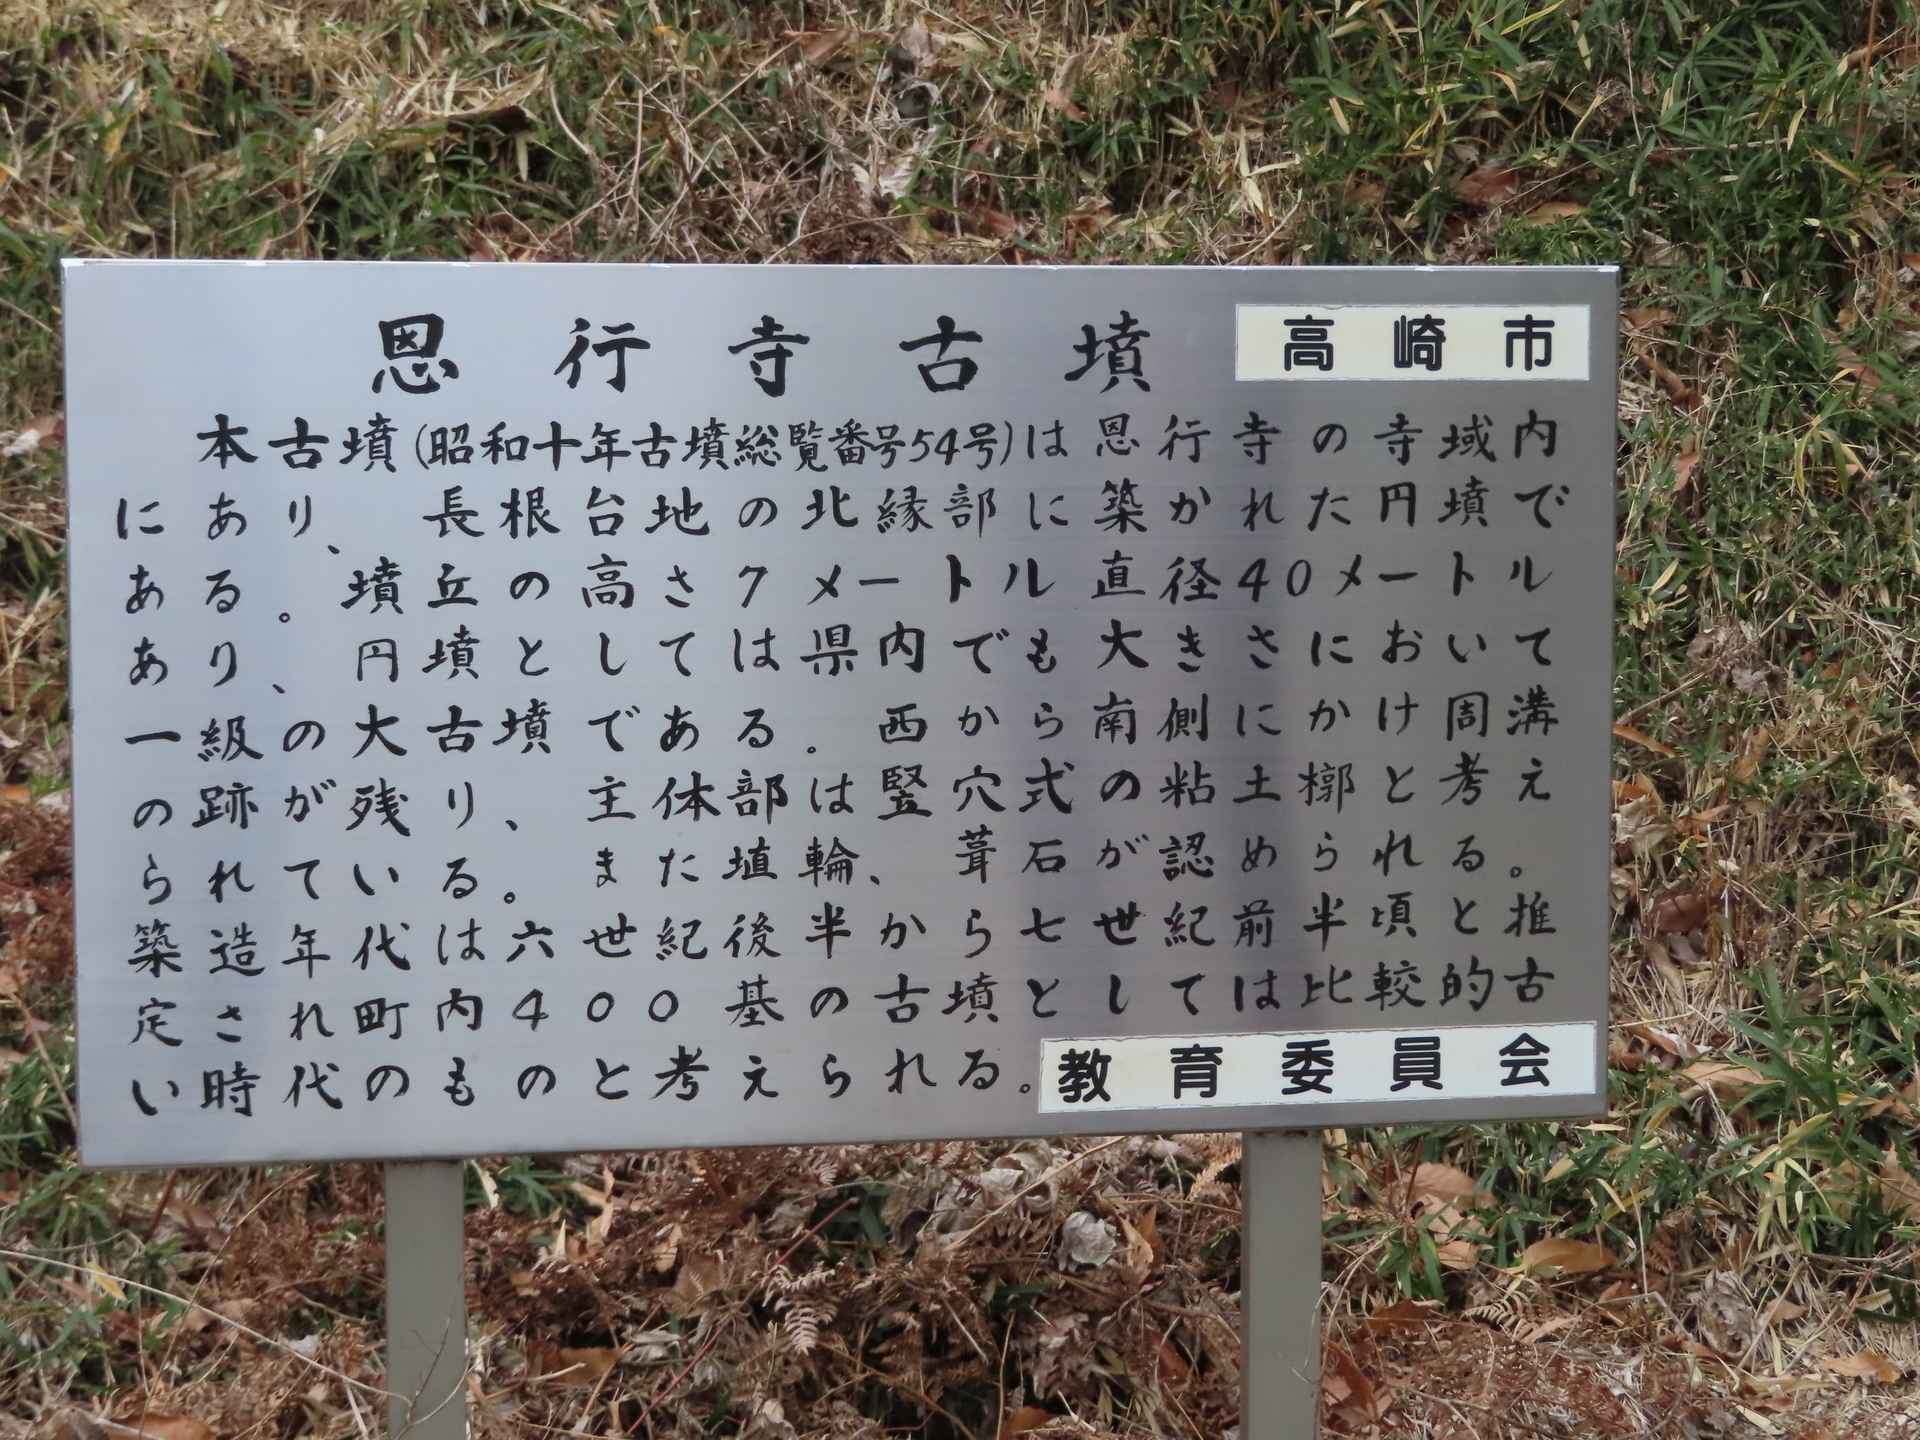 恩行寺古墳 高崎市
本古墳(昭和十年古墳総覧番号54号)は恩行寺の寺域内
にあり、長根台地の北縁部に築かれた円墳で
ある。墳丘の高さ7メートル直径40メートル
あり、円墳としては県内でも大きさにおいて
一級の大古墳である。西から南側にかけ周溝
の跡が残り、主体部は竪穴式の粘土槨と考え
られている。また埴輪、葺石が認められる。
築造年代は六世紀後半から七世紀前半頃と推
定され町内400基の古墳としては比較的古
い時代のものと考えられる。教育委員会